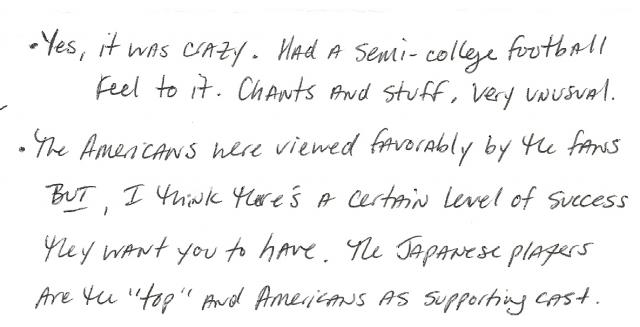 • Yes, it was crazy. Had a semi-college football
feel to it. Chants and stuff, very unusual.
• The Americans were viewed favorably by the fans
BUT, I think there's a certain level of success
they want you to have. The Japanese players
are the "top" and Americans as supporting cast.